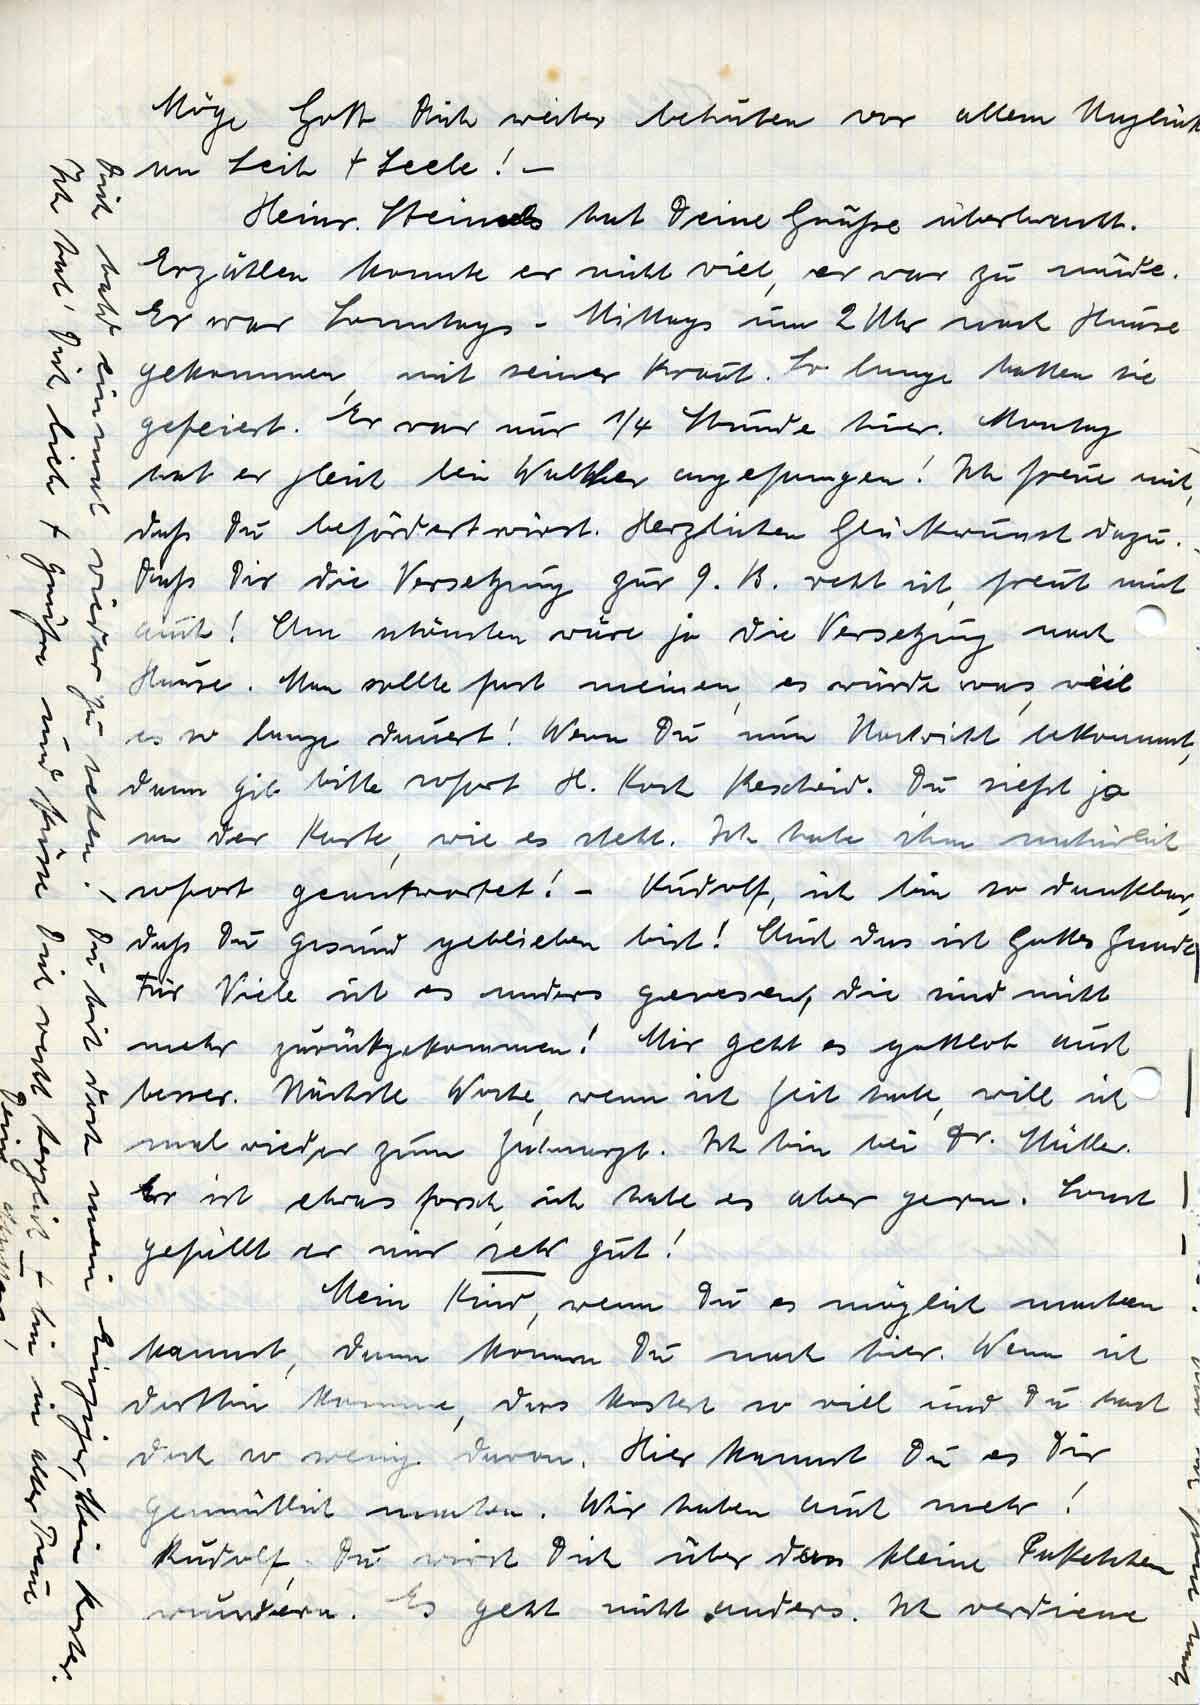 Möge Gott Dich weiter behüten vor allem Unglück
an Leib + Seele! –
Heinr. hat Deine Grüße überbracht.
Erzählen konnte er nicht viel, er war zu müde.
Er war Sonntags - Mittags um 2 Uhr nach Hause
gekommen, mit seiner Braut. So lange hatten sie
gefeiert. Er war nur 1/4 Stunde hier. Montag
hat er gleich bei Walther angefangen! Ich freue mich,
daß Du befördert wirst. Herzlichen Glückwunsch dazu. -
Daß Dir die Versetzung zur J. B. recht ist, freut mich
auch! Am schönsten wäre ja die Versetzung nach
Hause. Man sollte fast meinen, es würde was, weil
es so lange dauert! Wenn Du nun Nachricht bekommst,
dann gib bitte sofort H. Koch Bescheid. Du siehst ja
an der Karte, wie es steht. Ich habe ihm natürlich
sofort geantwortet! – Rudolf, ich bin so dankbar,
daß Du gesund geblieben bist! Auch das ist Gottes Gnade
Für Viele ist es anders gewesen, die sind nicht
mehr zurückgekommen! Mir geht es gottlob auch
besser. Nächste Woche, wenn ich Zeit habe, will ich
mal wieder zum Zahnarzt. Ich bin bei Dr. Müller.
Er ist etwas forsch, ich habe es aber gern. Sonst
gefällt er mir sehr gut!
Mein Kind, wenn Du es möglich machen
kannst, dann komm Du nach hier. Wenn ich
dorthin komme, das kostet so viel und Du hast
doch so wenig davon. Hier kannst Du es Dir
gemütlich machen. Wir haben auch mehr!
Rudolf, Du wirst Dich über das kleine Paketchen
wundern. Es geht nicht anders. Ich verdiene
Dich bald einmal wieder zu sehen! Du bist doch mein Einziger, Mein Bester.
Ich hab' Dich lieb + grüße und küsse Dich recht herzlich + bin in alter Treue
Deine